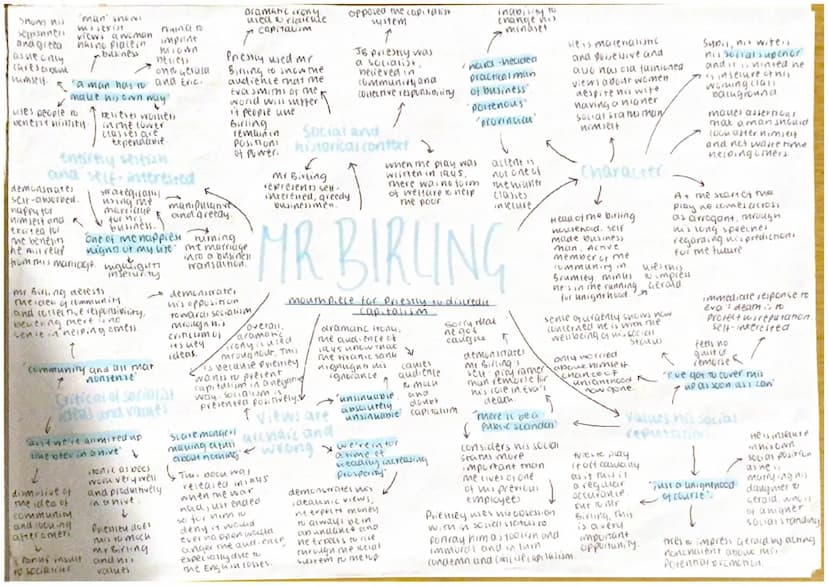 MR BIRLING
mouthpiece for Priestly to discredit
capitalism
Entirely selfish
and self-interested
'a man has to
make his own way'
uses people to
believes women
in the lower
classes are
expendable
'man' shows
business
demonstrates
self-absorbed.
happy for
himself and
excited for
the benefits
he will reap
from his marriage.
strategically
using the
marriage
for his
business.
manipulative
and greedy.
'one of the happiest
nights of my life'
turning
the marriage
into a business
transaction.
highlights
insecurity
Social and
historical context
dramatic irony
used to ridicule
capitalism
opposed the capitalist
system
Priestly used Mr
Birling to show the
audience that the
world will suffer
if people like
Birling
remain in
positions
of power.
JB Priestly was
a socialist,
believed in
community and
collective responsibility
Mr Birling
represents self-
interested, greedy
businessmen.
when the play was
written in 1945,
there was no form
of welfare to help
the poor
Character
inability to
change his
mindset
'hard-headed
practical man
of business'
'portentous'
'provincial'
accent is
not one of
the higher
classes
insecure
He is materialistic
and possessive and
also has old fashioned
views about women
despite his wife
having a higher
social status than
himself
Sybil, his wife is
his social superior
and it is hinted he
is insecure of his
working class
background
makes assertions
that a man should
look after himself
and not waste time
helping others
At the start of the
play he comes across
as arrogant, through
his long speeches
regarding his predictions
for the future
Head of the Birling
household. Self
made business
man. Active
member of the
community in
Brumley, thinks
he's in the running
for knighthood
uses this
to impress
Gerald
Values his social
reputation
immediate response to
Eva's death is to
protect his reputation
self-interested
feels no
guilt or
remorse
'I've got to cover this
up as soon as I can'
only worried
about himself
chance of
knighthood
now gone.
'just a knighthood
of course'.
He is insecure in
his own
social position
as he is
marrying his
daughter to
Gerald, who is
of a higher
social standing
tries to impress Gerald by acting
nonchalant about his
potential promotion.
important
opportunity.
'there'll be a
public scandal'
sorry that he
got caught
demonstrates
Mr Birling's
self pity rather
than remorse for
his role in Eva's
death
considers his social
status more
important than
the lives of one
of his previous
employees
Priestly uses his obsession
with his social status to
portray him as foolish and
immoral and in turn
condemn and criticise capitalism.
Views are
archaic and
wrong
overall,
dramatic
irony is used
throughout. This
is because Priestly
wants to present
capitalism in a negative
way. Socialism is
presented positively.
dramatic irony,
the audience of
1945 know that
the titanic sank
highlights his
ignorance
causes
audience
to mock
and
doubt
capitalism
'unsinkable,
absolutely
unsinkable'
'we're in for
a time of
steadily increasing
prosperity'
demonstrates his
idealistic views,
he expects money
to always be in
abundance and
'scaremongers
making a fuss
about nothing'
This book was
released in 1945
when the war
had just ended
so for him to
deny it would
ever happen would
anger the audience
especially due to
the English losses.
Critical of socialist
ideas and values
Mr Birling detests
the idea of community
and collective responsibility,
believing there is no
sense in helping others.
demonstrates
his opposition
toward socialism
through his
criticism of its
key ideas.
'community and all that
nonsense'
dismissive of
the idea of
community
and looking
after others
ironic as bees
work very well
and productively
in a hive.
Priestly does
this to mock
Mr Birling
and his
values.